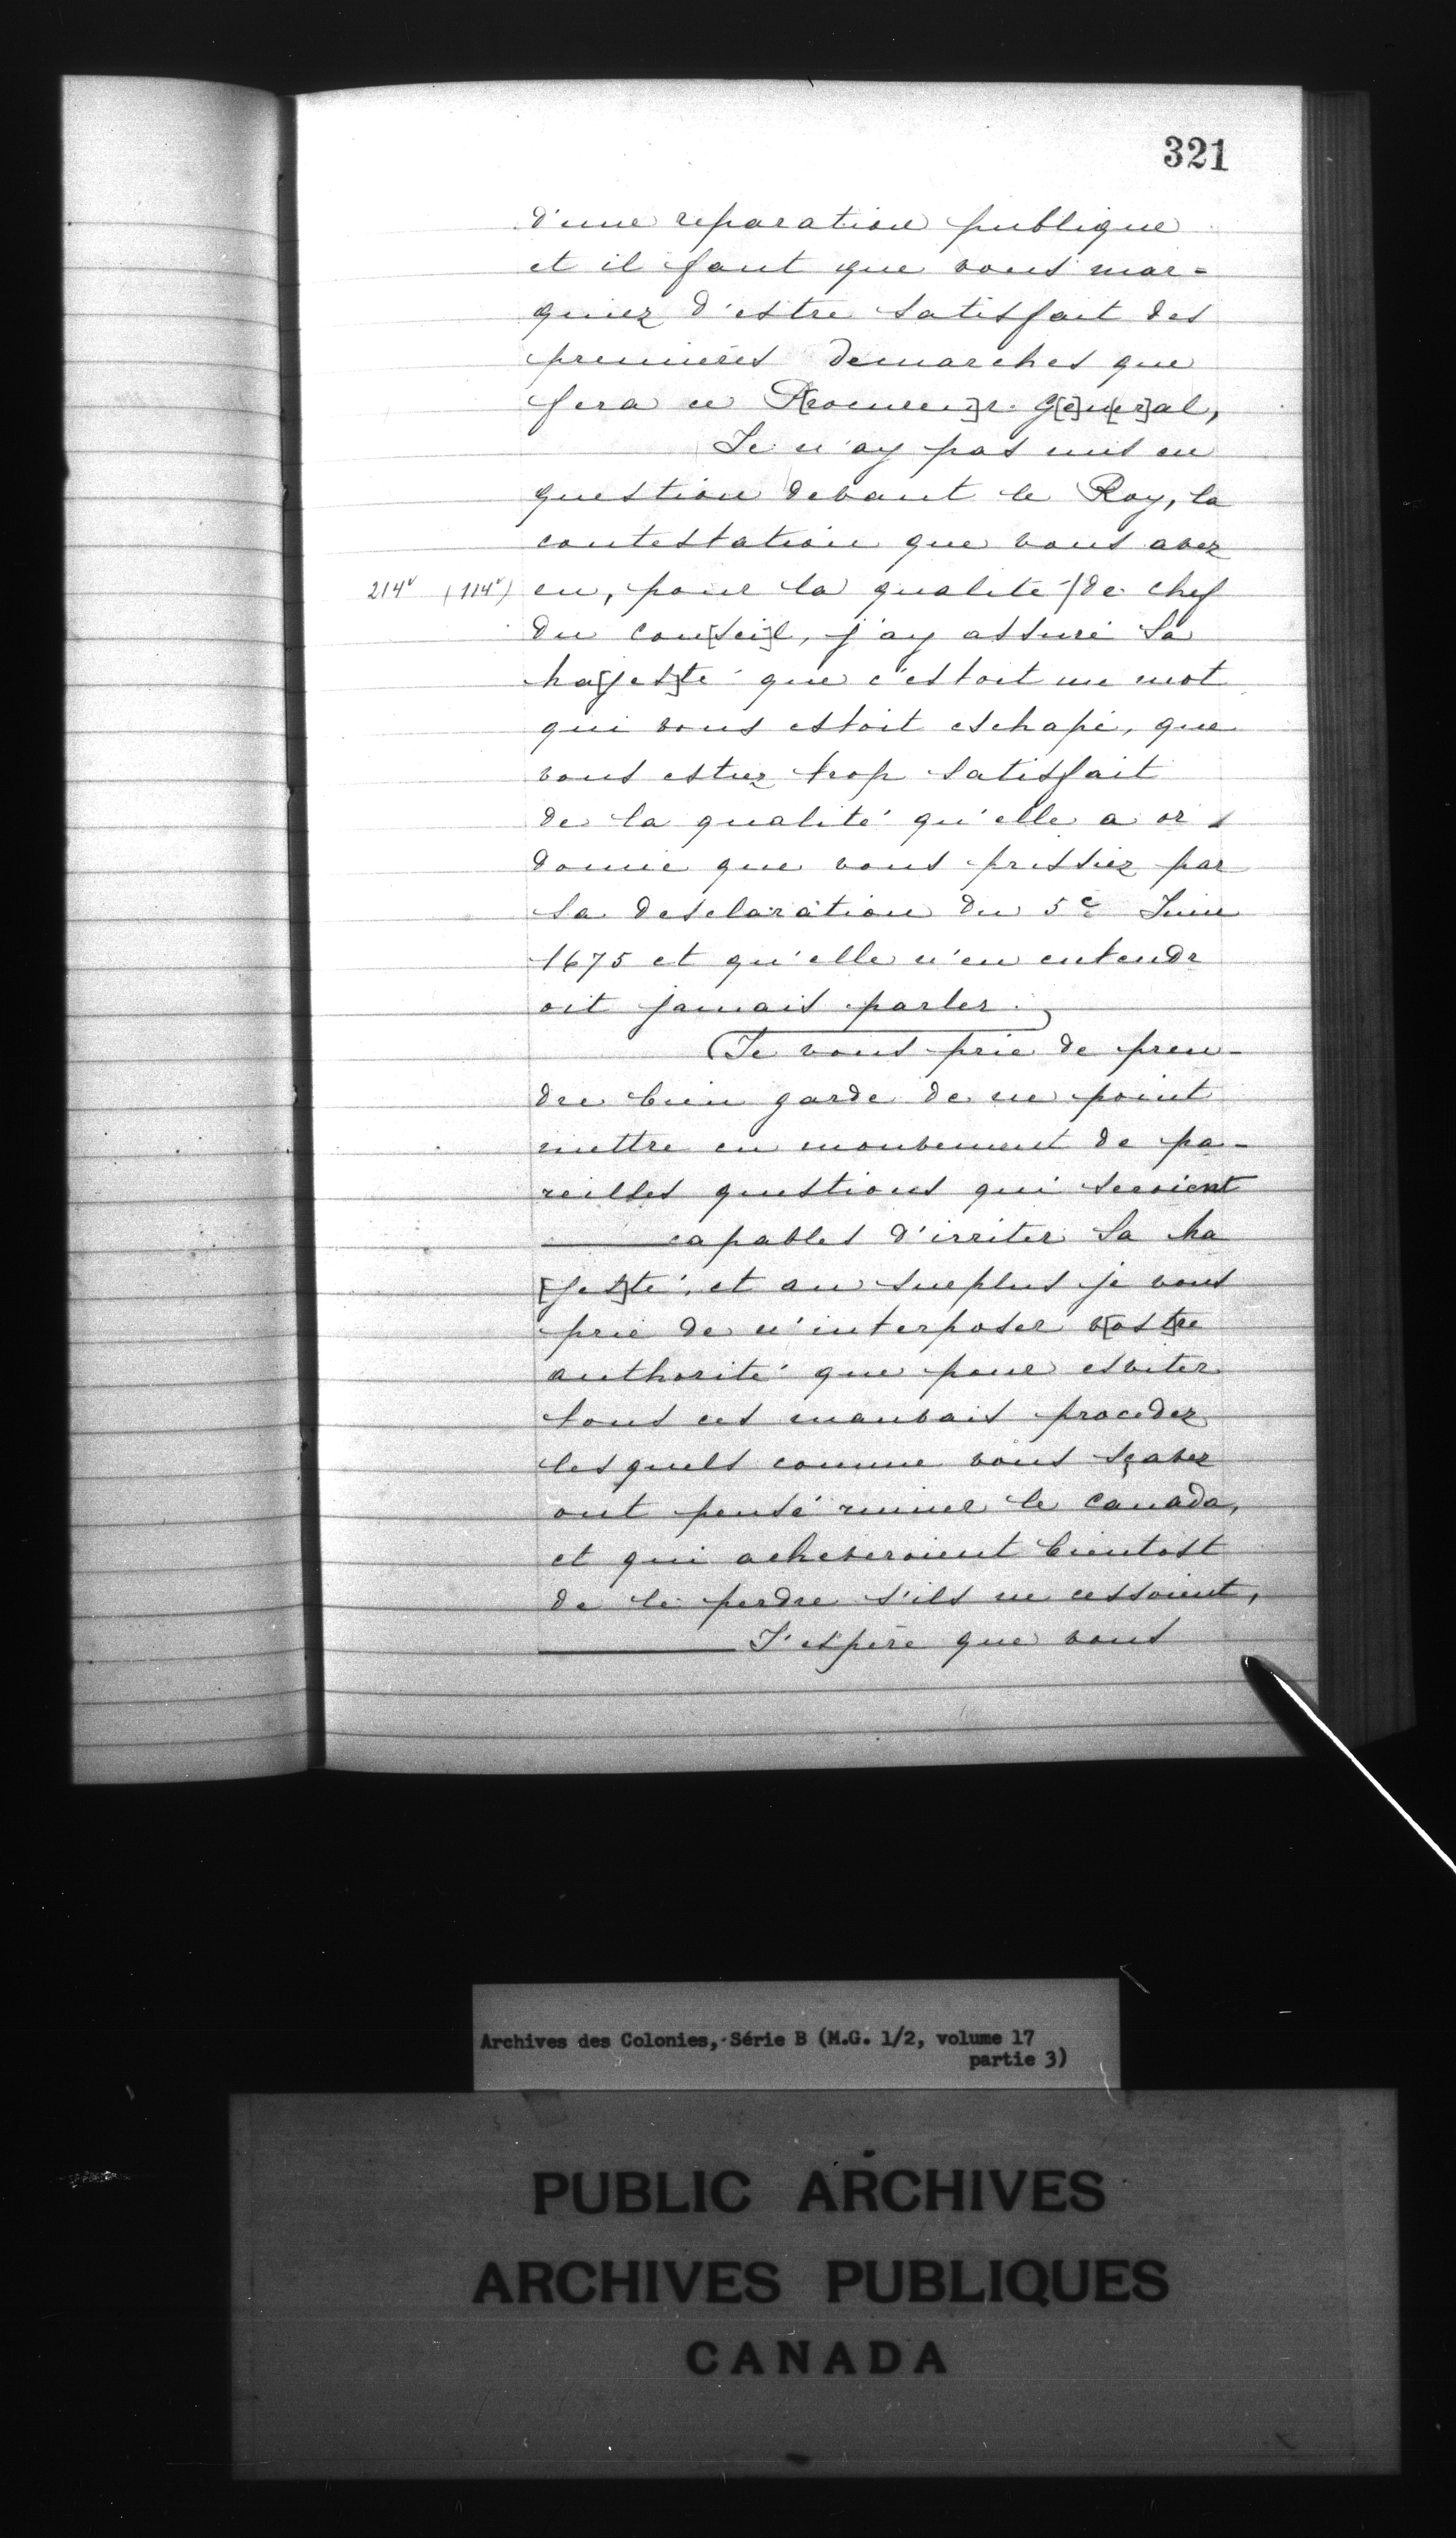 321
d'une reparation publique
et il faut que vous mar=
quiez d'estre satisfait des
premières demarches que
fera ce P[rocureu]r G[e]n[er]al,
Je n'ay pas mis en
question devant le Roy, la
contestation que vous avez
214v (114v) eu, pour la qualité /de chef
du Con[sei]l, j'ay assuré Sa
Ma[jes]té que c'estoit un mot
qui vous estoit eschapé, que
vous estiez trop satisfait
de la qualité qu'elle a or
donné que vous prissiez par
sa desclaration du 5e Juin
1675 et qu'elle n'en entendr
oit jamais parler.
Je vous prie de pren-
dre bien garde de ne point
mettre en mouvement de pa-
reilles questions qui seroient
capables d'irriter Sa Ma
[jes]té, et au surplus je vous
prie de n'interposer v[ost]re
authorité que pour esviter
tous ces mauvais procedez
lesquels comme vous sçavez
ont pensé ruiner le Canada,
et qui acheveroient bientost
de le perdre s'ils ne cessoient,
J'espère que vous
Archives des Colonies, Série B (M.G. 1/2, volume 17
partie 3)
PUBLIC ARCHIVES
ARCHIVES PUBLIQUES
CANADA